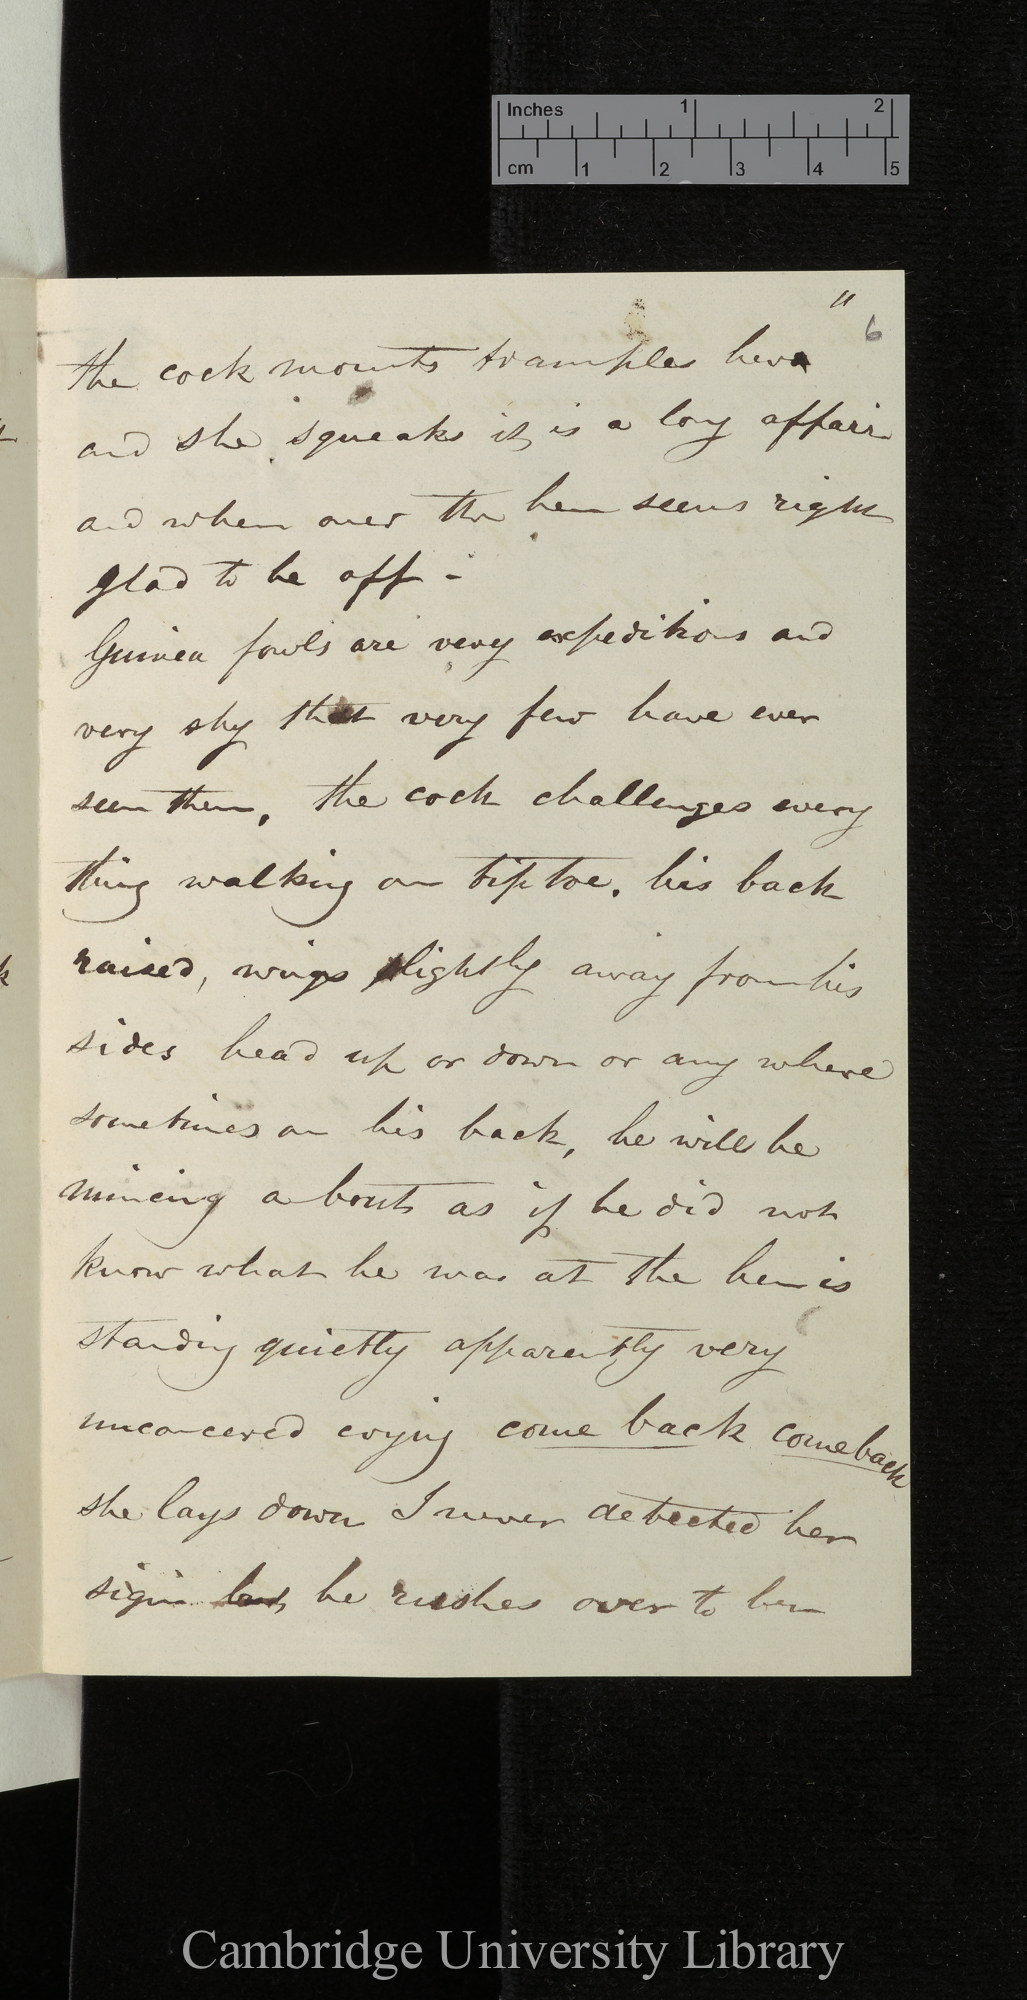 Inches 1 2
cm 1 2 3 4 5
11
6
the cock mounts tramples her
and she squeaks it is a long affair
and when over the hen seems right
glad to be off -
Guinea fowls are very expeditious and
very shy that very few have ever
seen them, the cock challenges every
thing walking on tiptoe. his back
raised, wings slightly away from his
sides head up or down or any where
sometimes on his back, he will be
mincing about as if he did not
know what he was at the hen is
standing quietly apparently very
unconcered crying come back comeback
she lays down I never detected her
sign but he rushes over to her
Cambridge University Library